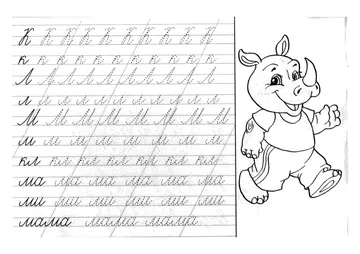 К К К К К К К К К
к к к к к к к к к к
Л Л Л Л Л Л Л Л Л
л л л л л л л л л
М М М М М М М М
м м м м м м м м
кл кл кл кл кл кл
ма ма ма ма ма ма
ми ми ми ми ми ми
мама мама мама